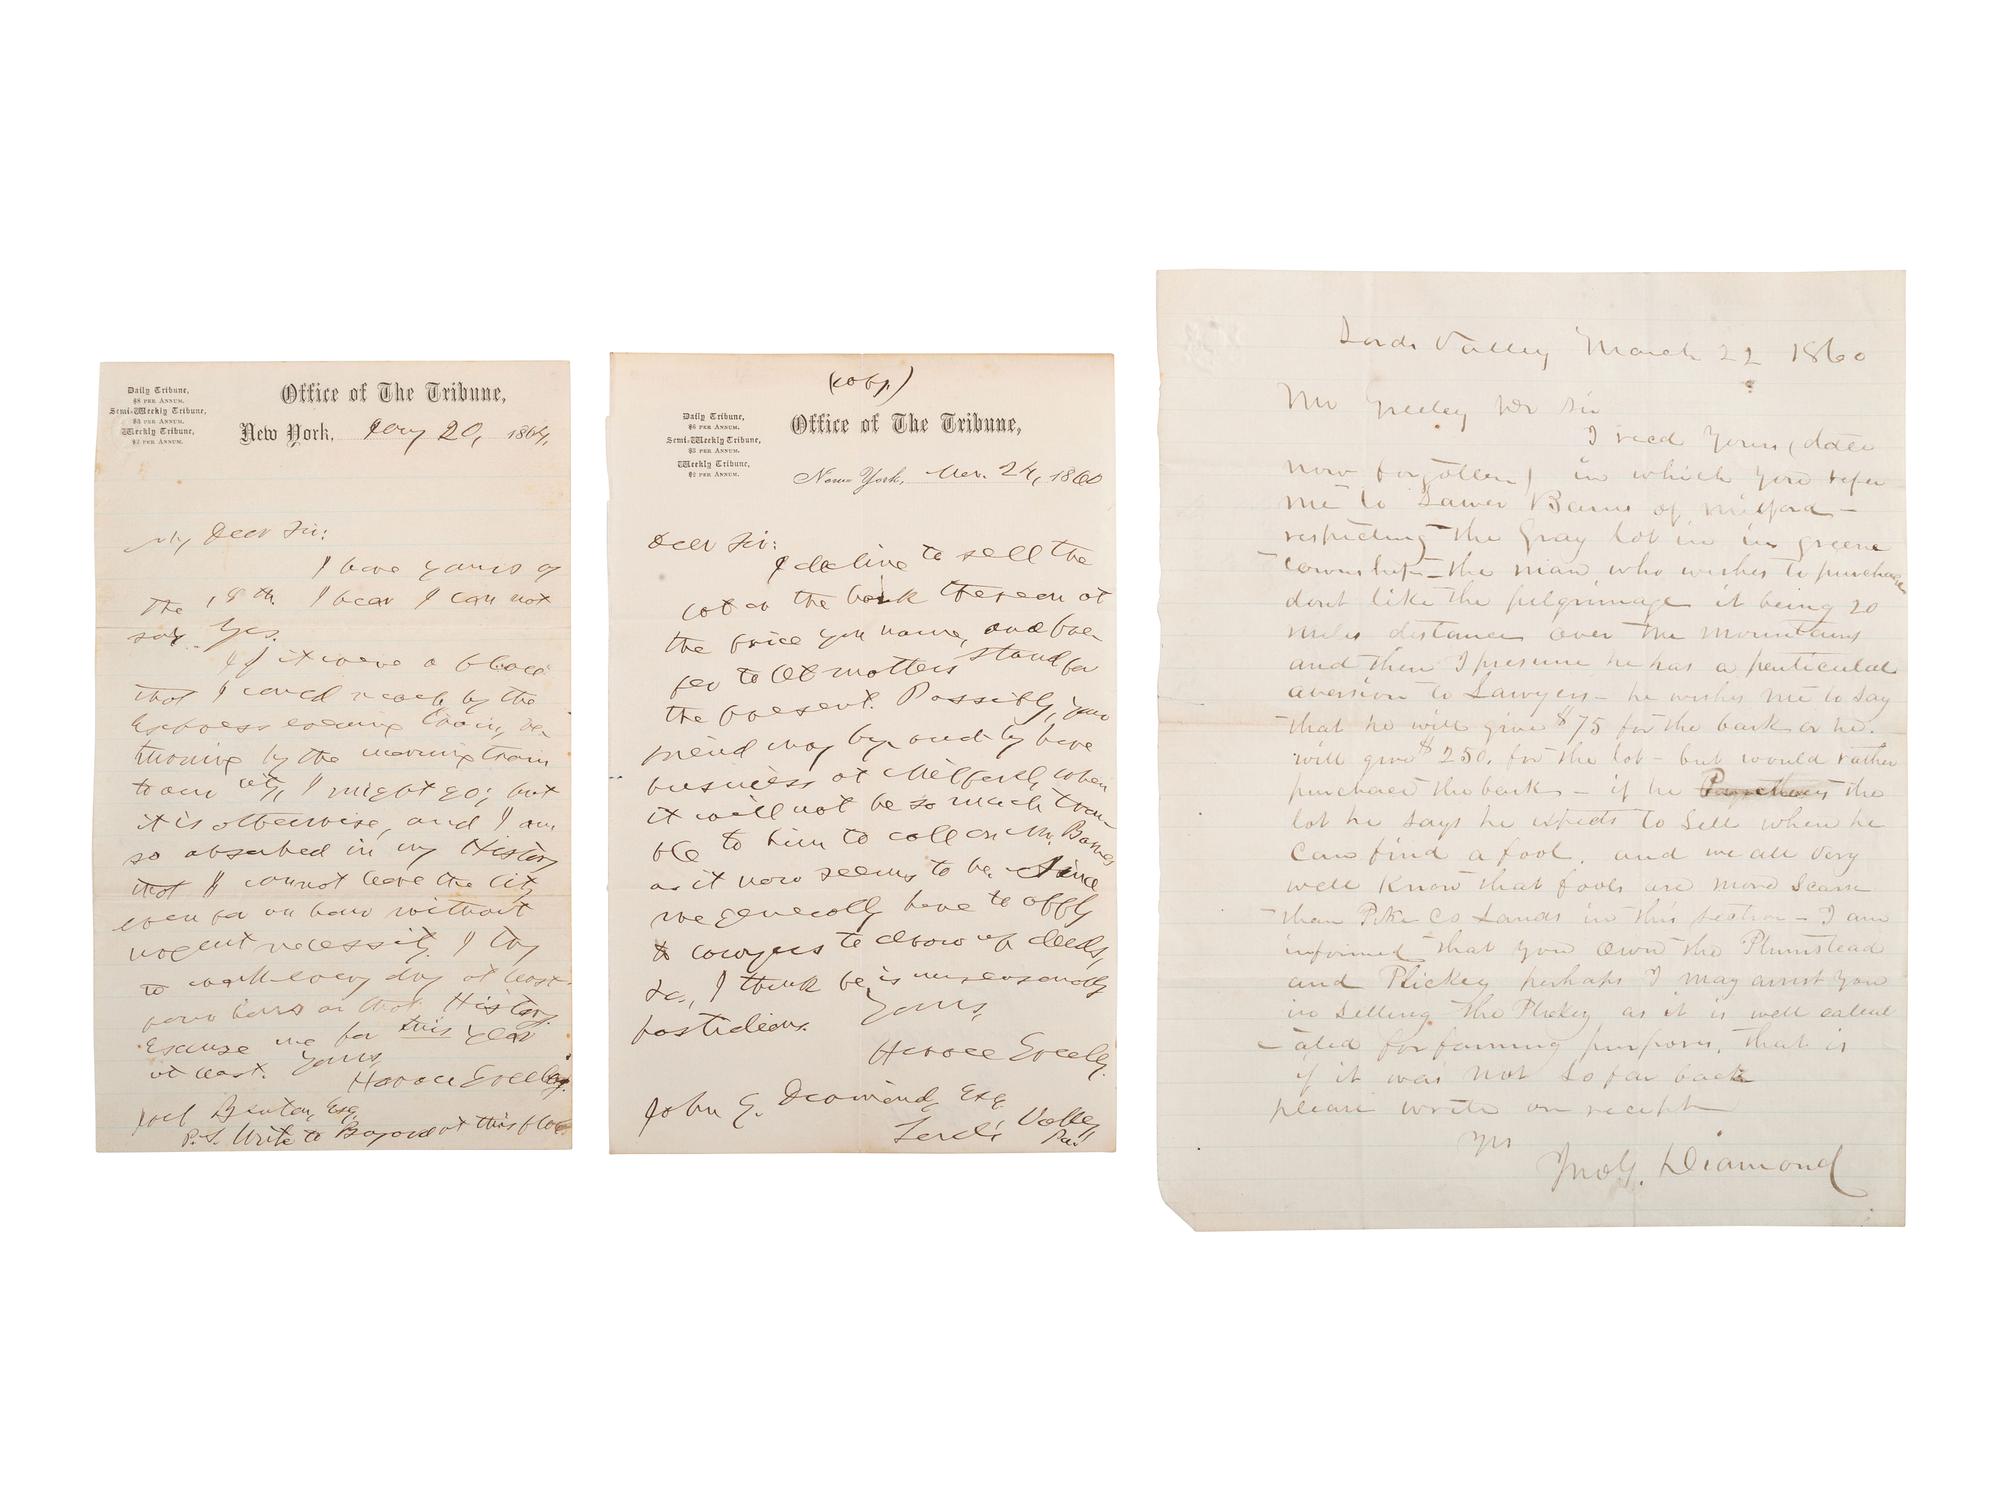 Daily Tribune,
$8 PER ANNUM.
Semi-Weekly Tribune,
$3 PER ANNUM.
Weekly Tribune,
$2 PER ANNUM.
Office of The Tribune,
New York, 20, 1864,
My Dear Sir:
I have yours of
the 18th. I fear I can not
say Yes.
If it were a place
that I could reach by the
Express evening train, re-
turning by the morning train
to our city, I might go; but
it is otherwise, and I am
so absorbed in my History
that I cannot leave the city
even for an hour without
urgent necessity. I try
to work every day at least
four hours on that History.
Excuse me for this year
at least. Yours,
Horace Greeley.
Joel Benton, Esq.
P.S. Write to Bayard at this place
(copy)
Daily Tribune,
$6 PER ANNUM.
Semi-Weekly Tribune,
$3 PER ANNUM.
Weekly Tribune,
$2 PER ANNUM.
Office of The Tribune,
New York, Mar. 24, 1860
Dear Sir:
I decline to sell the
lot or the bark thereon at
the price you name, and pre-
fer to let matters stand for
the present. Possibly, your
friend may by and by have
business at Milford, when
it will not be so much trou-
ble to him to call on Mr. Barnes
as it now seems to be. Since
we generally have to apply
to lawyers to draw up deeds,
&c., I think he is unreasonably
fastidious. Yours,
Horace Greeley.
John G. Diamond, Esq.
Lord's Valley
Pa.
Lords Valley March 22 1860
Mr Greeley Dr Sir
I recd Yours (date
now forgotten) in which you refer
me to Lawer Barns of milford -
respecting the Gray lot in in greene
township - the man who wishes to purchase
dont like the pilgrimage it being 20
miles distance over the mountains
and then I presume he has a perticular
aversion to Lawyers - he wishes me to say
that he will give $75 for the bark or he
will give $250. for the lot - but would rather
purchase the bark - if he the
lot he says he expects to Sell when he
Can find a fool, and we all very
well Know that fools are more scarce
than Pike Co Lands in this section - I am
informed that you own the Plumstead
and Plickey perhaps I may assist you
in Selling the Plickey as it is well calcul
-ated for farming purposes, that is
if it was not So far back
please write on receipt
Yrs
Jno G. Diamond